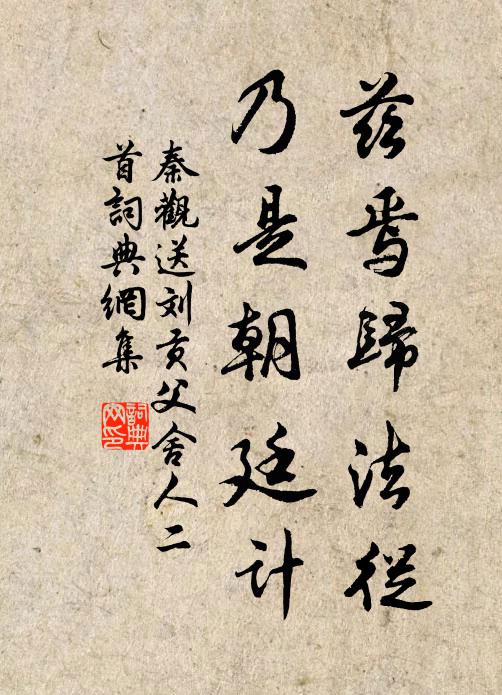 兹焉歸法從
乃是朝廷计
秦觀送刘贡父舍人二
首詞典網集
詞典
网印